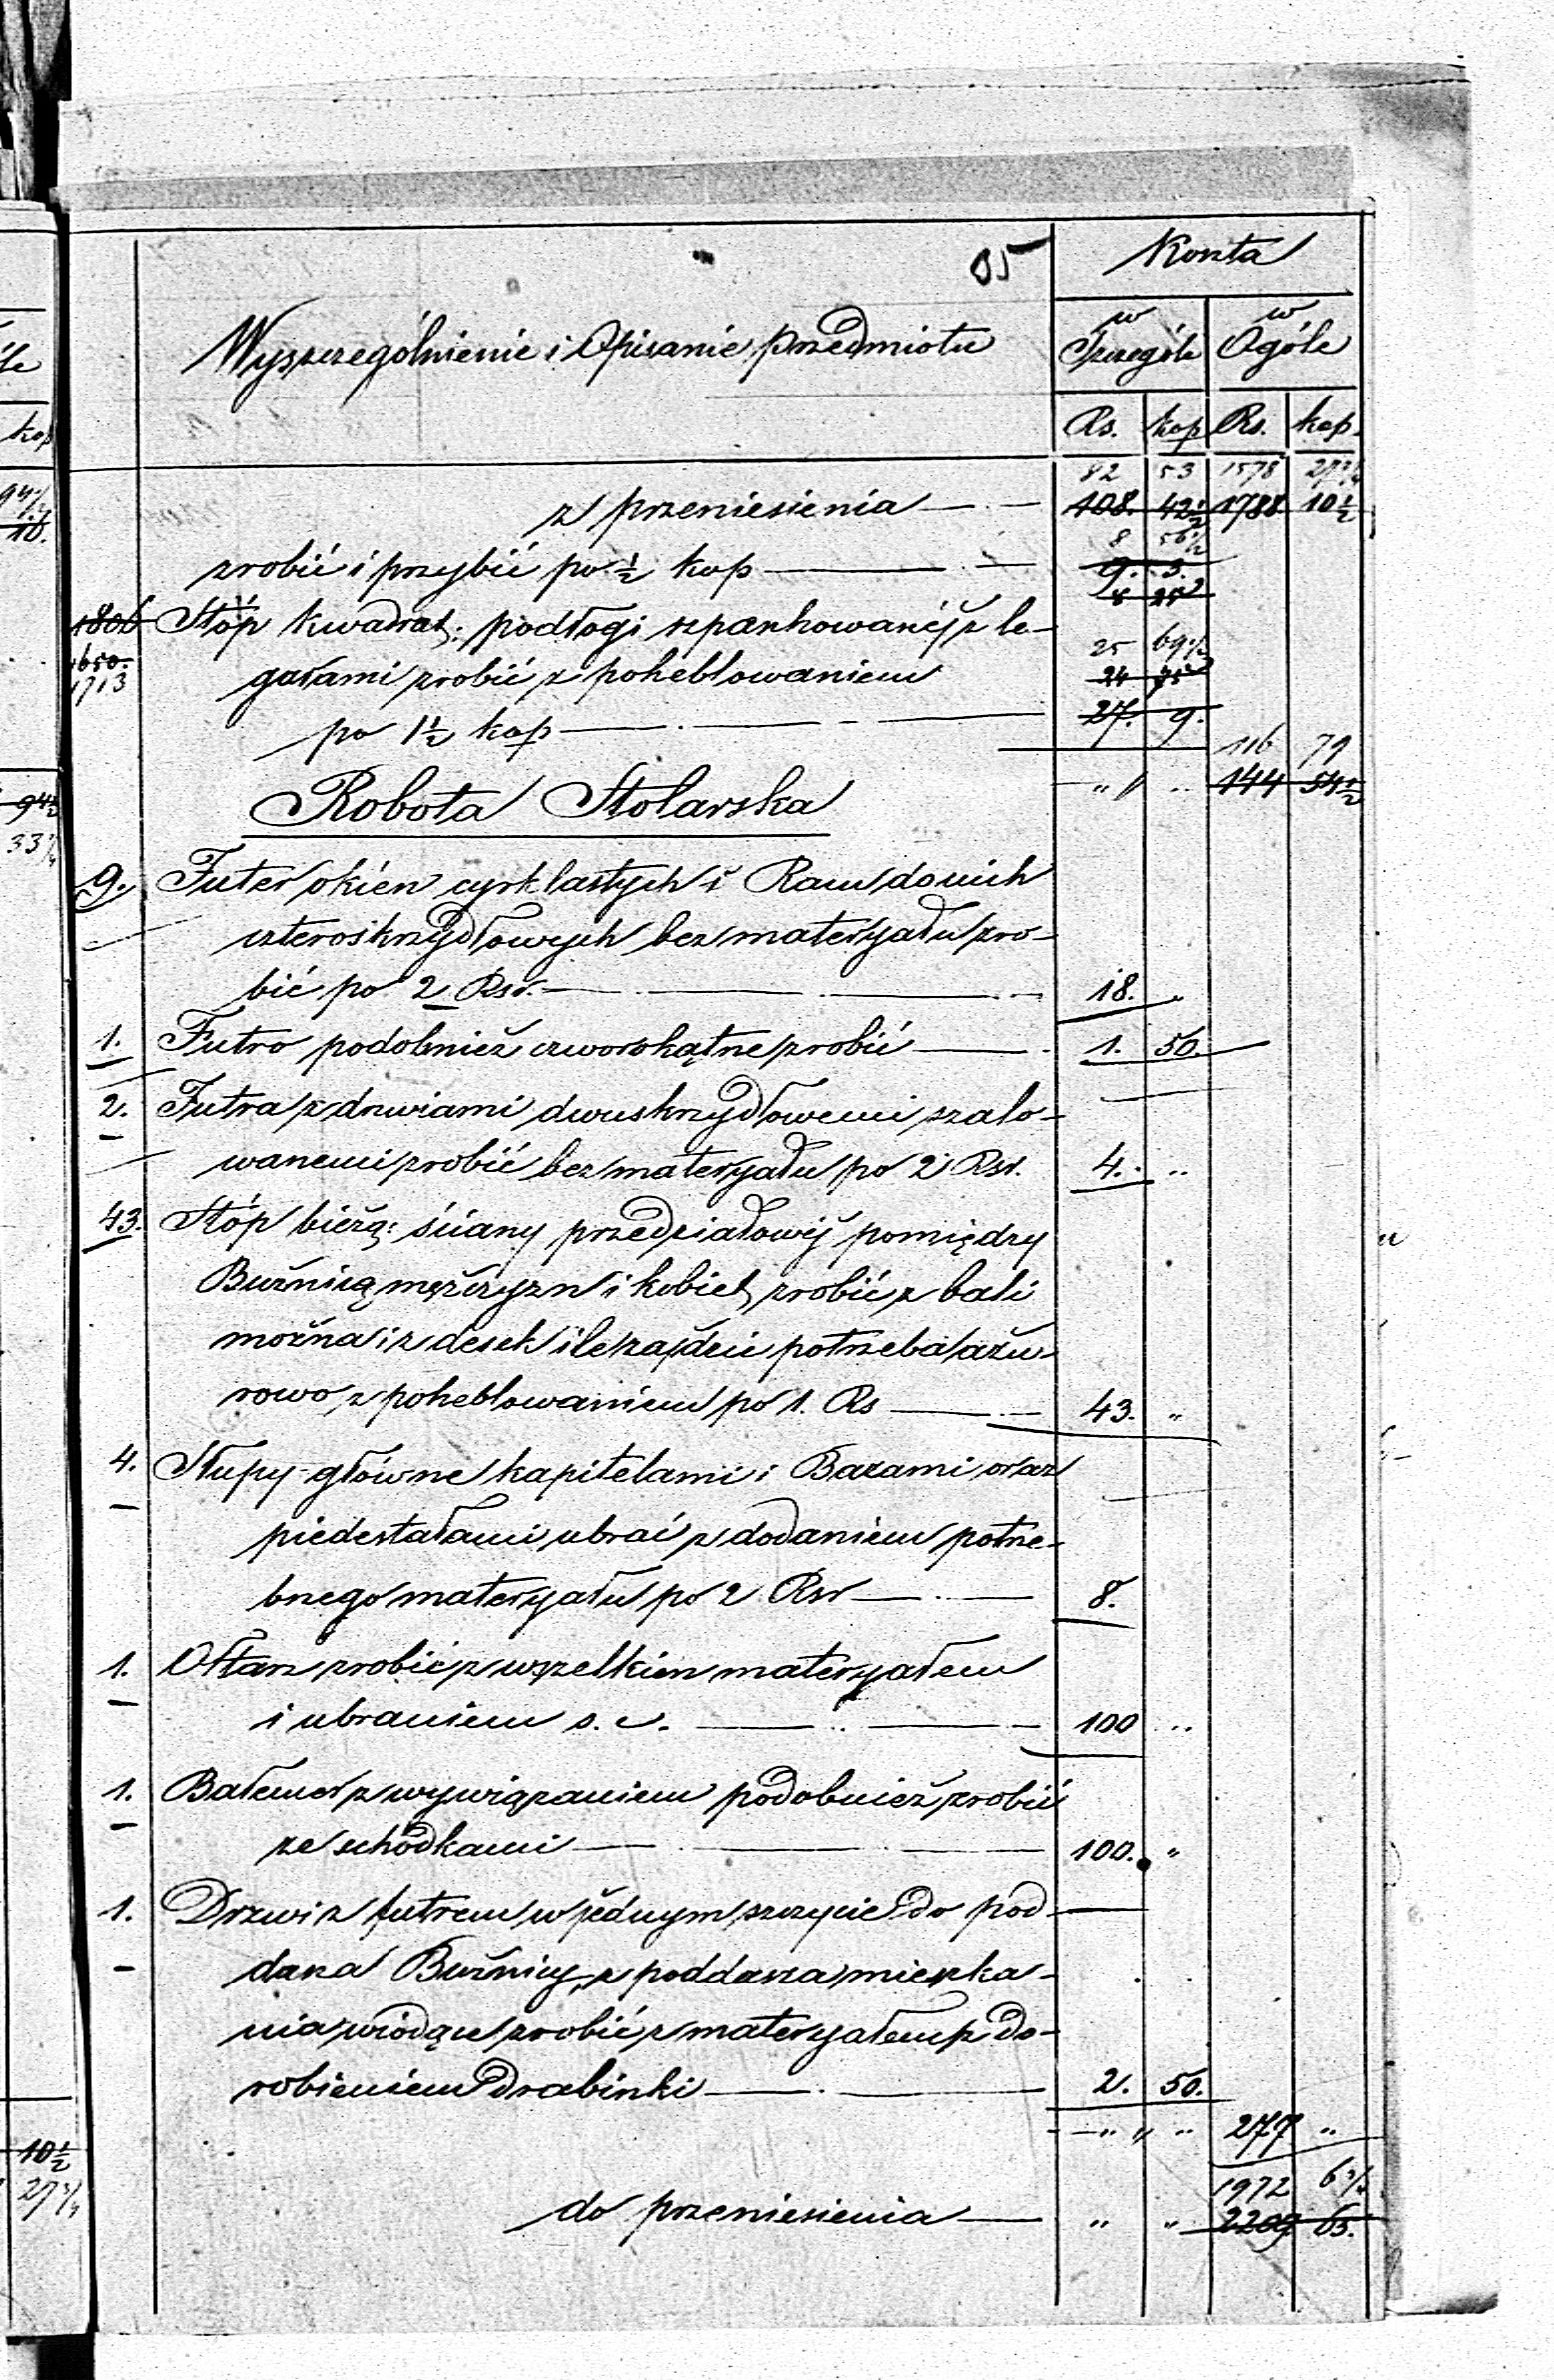 95
Koszta
Wyszczególnienie i Opisanie przedmiotu
w Szczególe
w Ogóle
Rs. kop Rs. kop.
82 53 1578 27 3/4
z przeniesienia — 108. 42 1/2 1788 10 1/2
8 56 1/2
zrobić i przybić po 1/2 kop — 9. 3.
8 25
1806 Stóp kwadrat: podłogi szpanhowanéj z le-
1650. 25 69 1/2
1713 garami zrobić z poheblowaniem 24 75
po 1 1/2 kop — 27. 9.
116 79
" " 144 54 1/2
Robota Stolarska
9. Futer okien cyrklastych i Ram do nich
czteroskrzydłowych bez materyału zro-
bić po 2 Rsr. — 18. "
1. Futro podobnież czworokątne zrobić — 1. 50.
2. Futra z drzwiami dwuskrzydłowemi szalo-
wanemi zrobić bez materyału po 2 Rsr. 4. "
43. Stóp bieżą: ściany przedziałowéj pomiędzy
Bużnicą mężczyzn i kobiet, zrobić z bali
można i z desek ile zajdzie potrzeba ażu-
rowo, z poheblowaniem po 1. Rs — 43. "
4. Słupy główne kapitelami i Bazami oraz
piedestałami ubrać z dodaniem potrze-
bnego materyału po 2 Rsr — 8.
1. Ołtarz zrobić z wszelkiem materyałem
i ubraniem s. c. — 100 "
1. Bałemer z wywiązaniem podobnież zrobić
ze schodkami — 100. "
1. Drzwi z futrem w jednym szczycie do pod-
dasza Bużnicy, z poddasza mieszka-
nia wiodące zrobić z materyałem z do-
robieniem Drabinki — 2. 50.
" " 277 "
1972 6 3/4
do przeniesienia — " " 2209 65.